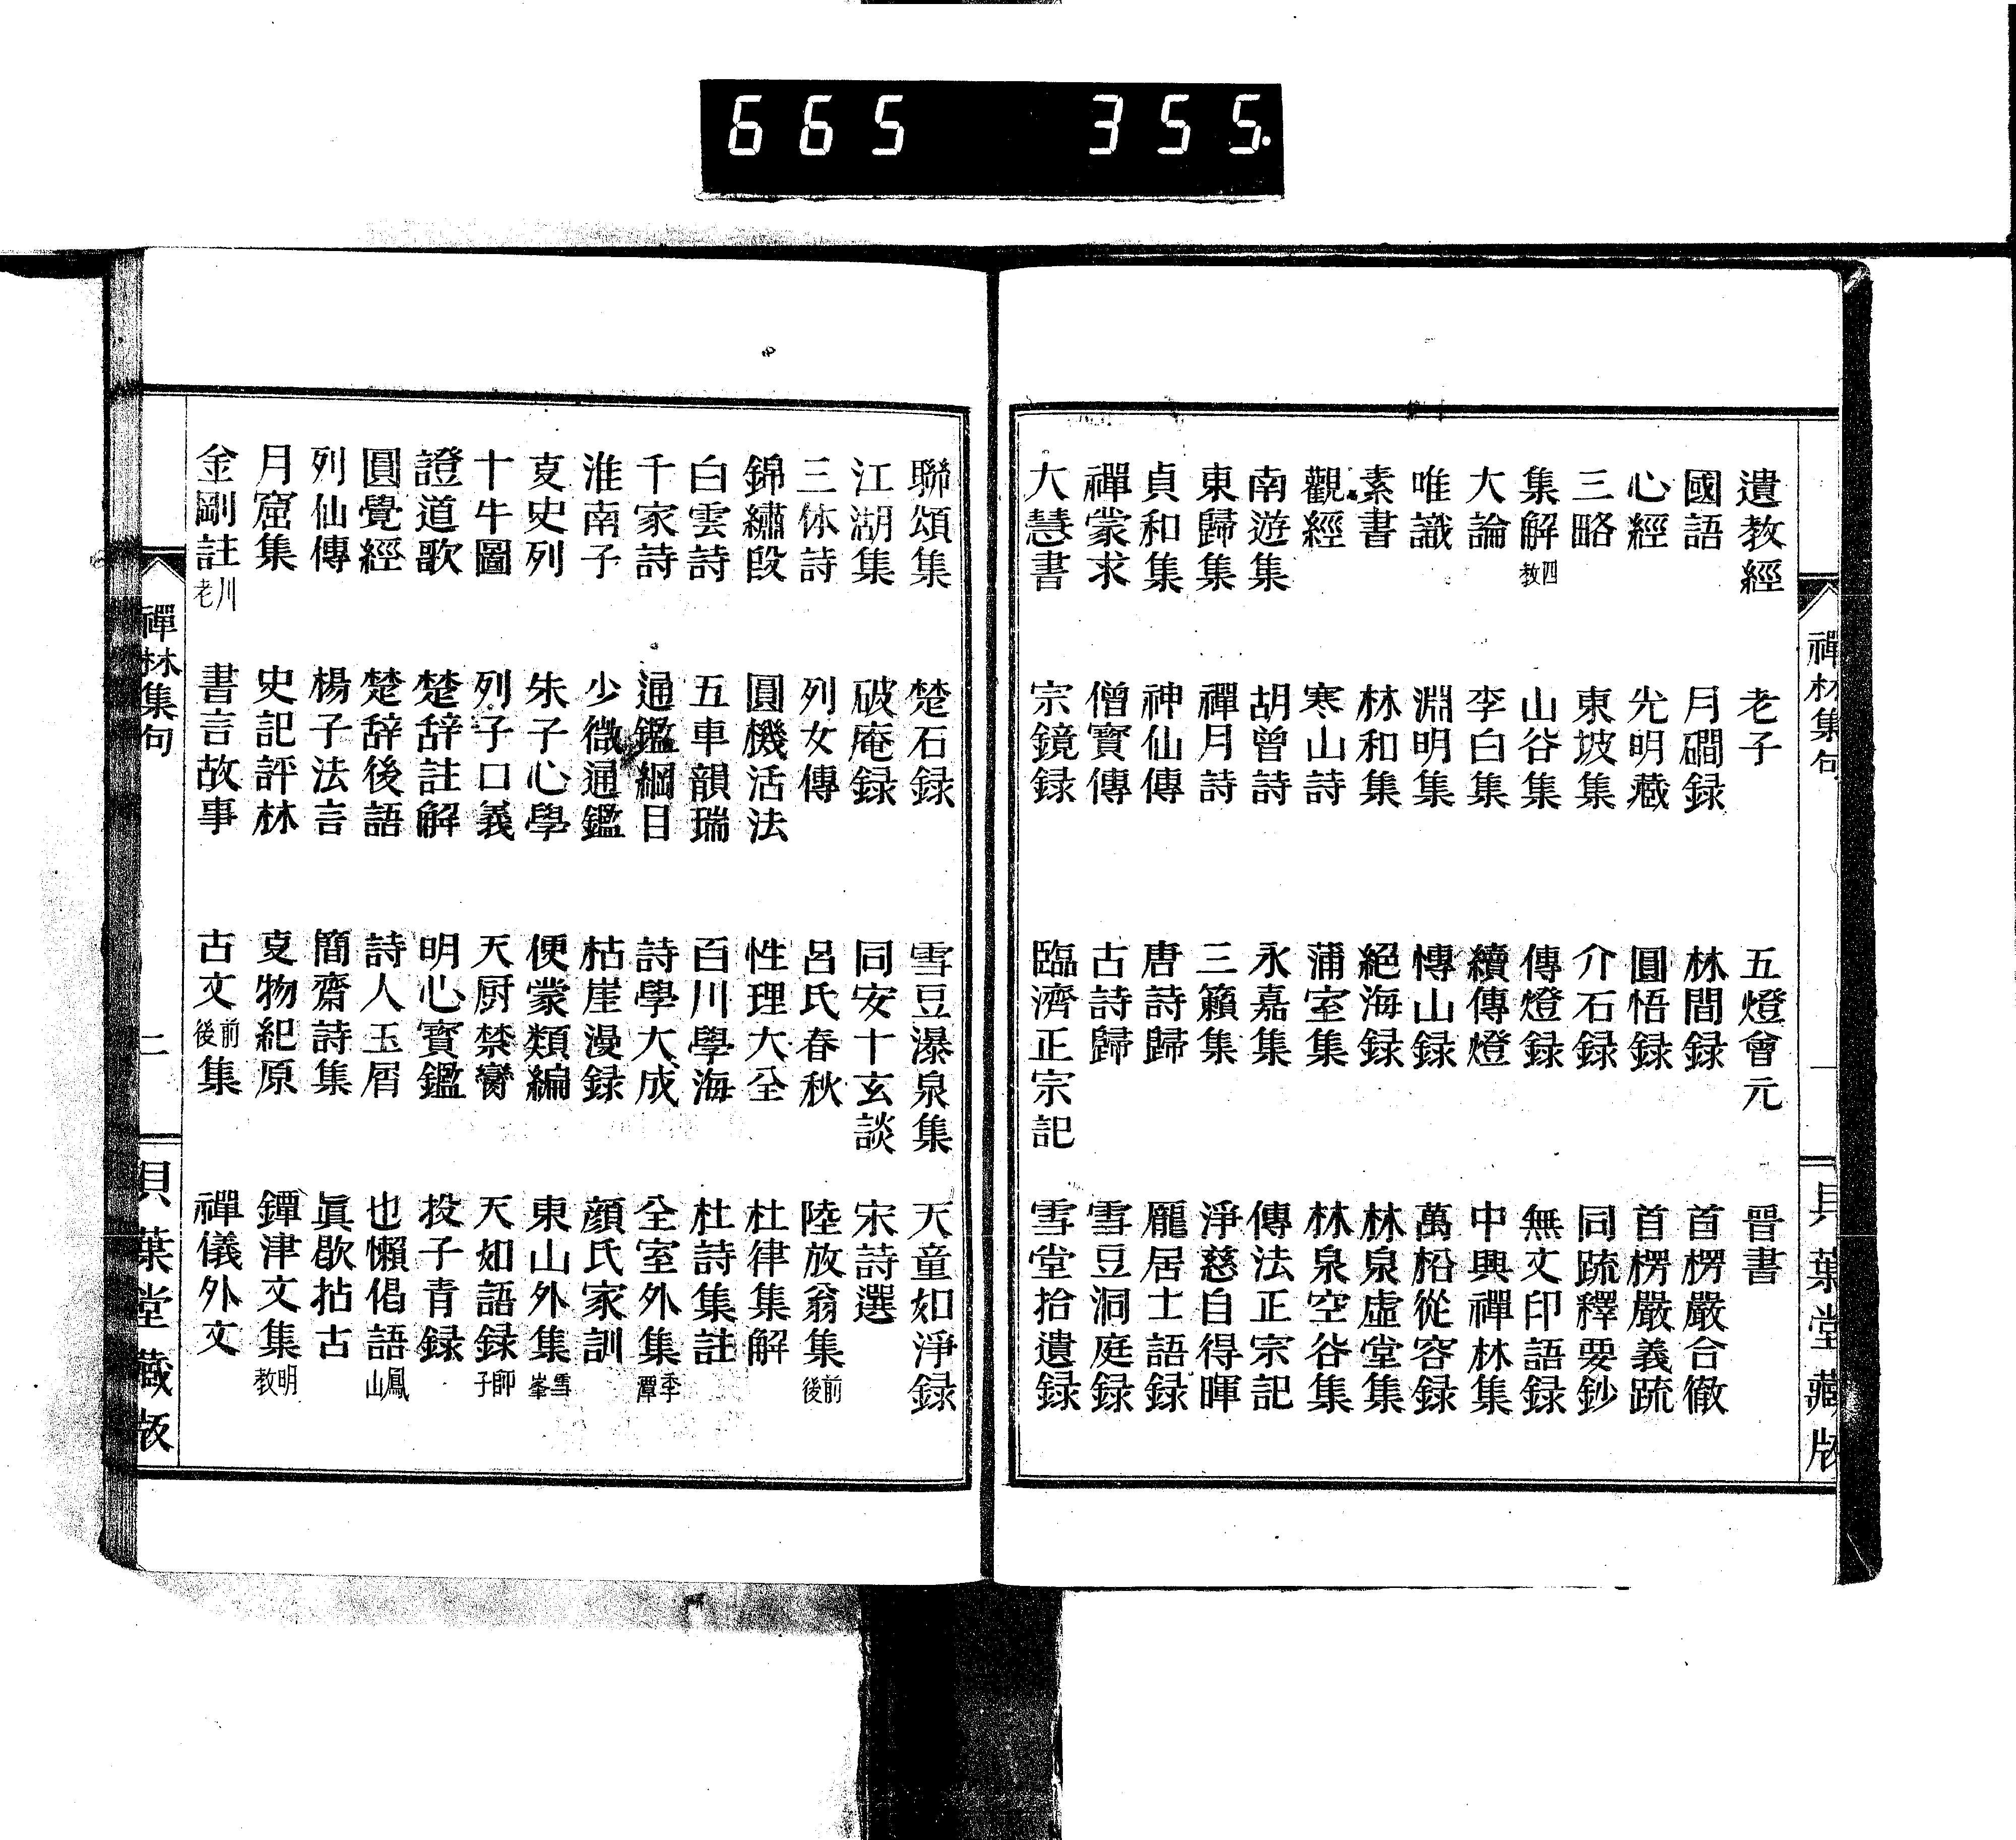 665 355.
禪林集句 一 貝葉堂藏版
遺教經 老子 五燈會元 晋書
國語 月磵録 林間録 首楞嚴合徹
心經 光明藏 圓悟録 首楞嚴義疏
三略 東坡集 介石録 同疏釋要鈔
集解四教 山谷集 傳燈録 無文印語録
大論 李白集 續傳燈 中興禪林集
唯識 淵明集 慱山録 萬松從容録
素書 林和集 絕海録 林泉虛堂集
觀經 寒山詩 蒲室集 林泉空谷集
南遊集 胡曽詩 永嘉集 傳法正宗記
東歸集 禪月詩 三籟集 淨慈自得暉
貞和集 神仙傳 唐詩歸 龐居士語録
禪蒙求 僧寶傳 古詩歸 雪豆洞庭録
大慧書 宗鏡録 臨濟正宗記 雪堂拾遺録
聯頌集 楚石録 雪豆瀑泉集 天童如淨録
江湖集 破庵録 同安十玄談 宋詩選
三体詩 列女傳 呂氏春秋 陸放翁集前後
錦繡段 圓機活法 性理大全 杜律集解
白雲詩 五車韻瑞 百川學海 杜詩集註
千家詩 通鑑綱目 詩學大成 全室外集季潭
淮南子 少微通鑑 枯崖漫録 顔氏家訓
𠭥史列 朱子心學 便蒙類編 東山外集雪峯
十牛圖 列子口義 天厨禁臠 天如語録師子
證道歌 楚辞註解 明心寶鑑 投子青録
圓覺經 楚辞後語 詩人玉屑 也懶偈語鳳山
列仙傳 楊子法言 簡齋詩集 眞歇拈古
月窟集 史記評林 𠭥物紀原 鐔津文集明教
金剛註川老 書言故事 古文前後集 禪儀外文
禪林集句 二 貝葉堂藏版